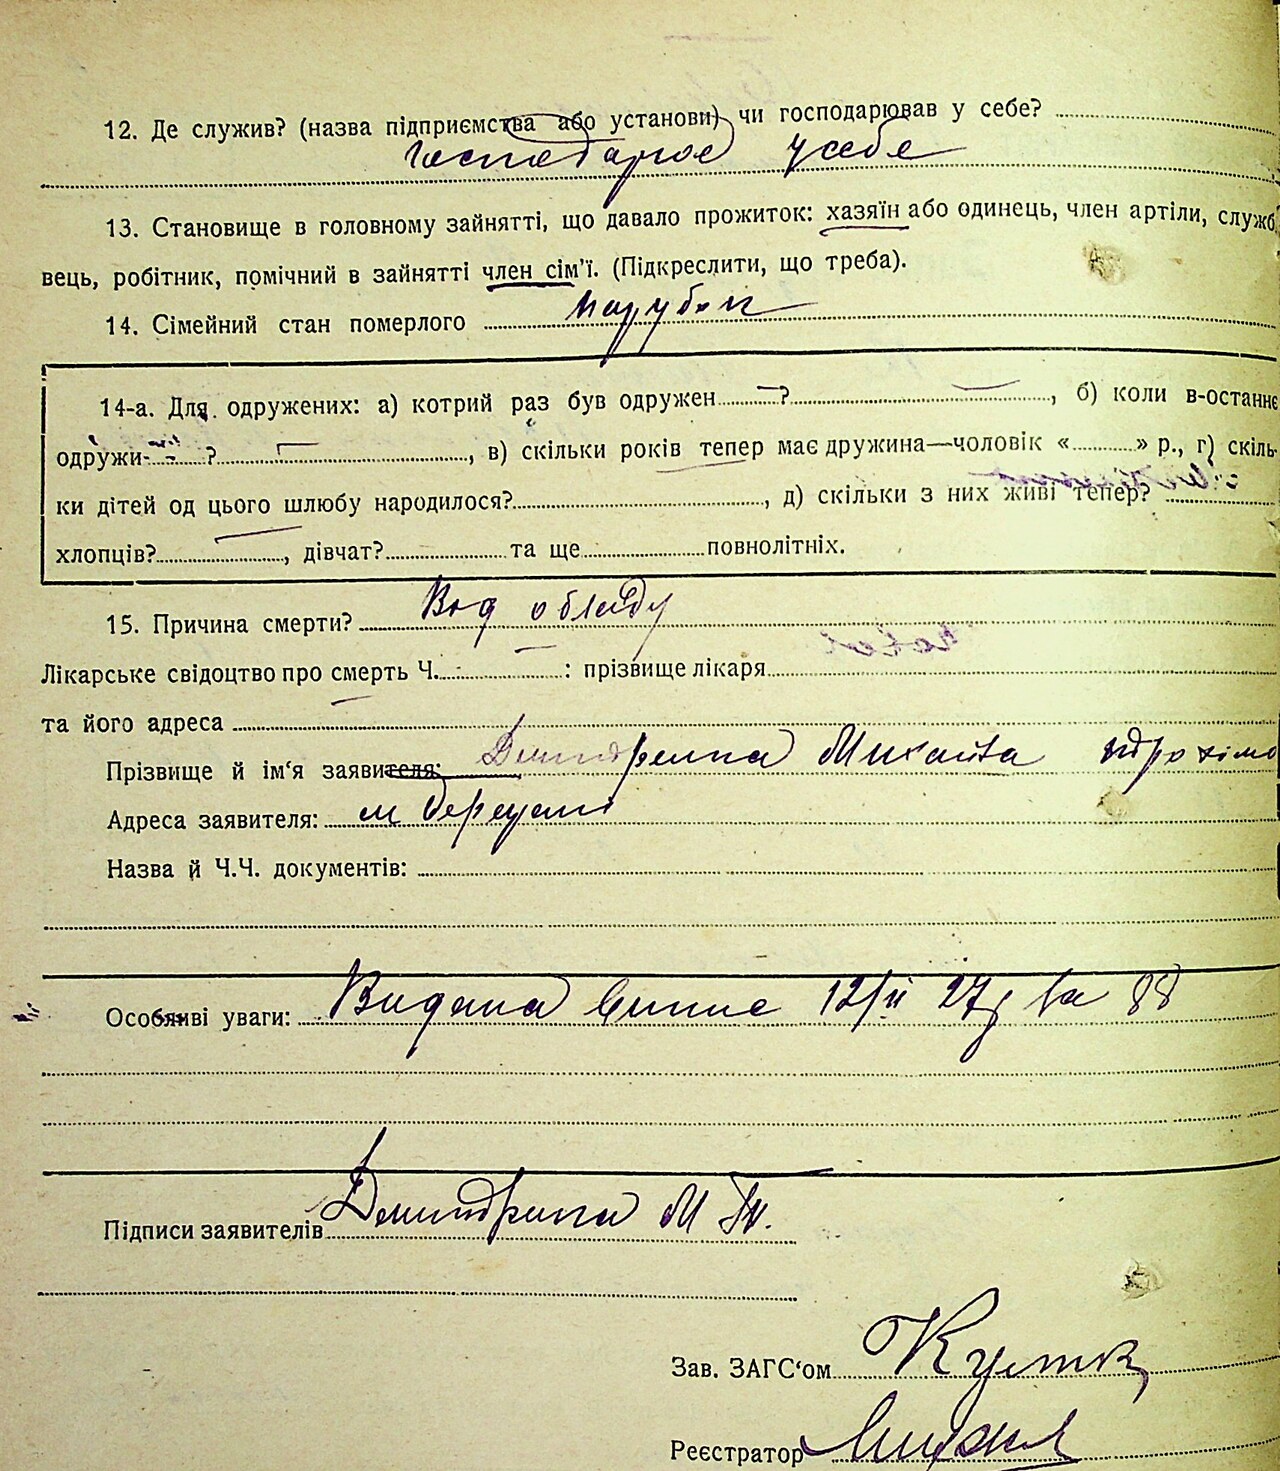 12. Де служив? (назва підприємства або установи) чи господарював у себе?
господарював у себе
13. Становище в головному зайнятті, що давало прожиток: хазяїн або одинець, член артіли, служб
вець, робітник, помічний в зайнятті член сім'ї. (Підкреслити, що треба).
14. Сімейний стан померлого парубок
14-а. Для одружених: а) котрий раз був одружен ? , б) коли в-останнє
одружи- ? , в) скільки років тепер має дружина—чоловік « » р., г) скіль-
ки дітей од цього шлюбу народилося? , д) скільки з них живі тепер?
хлопців? , дівчат? та ще повнолітніх.
15. Причина смерти? Від
Лікарське свідоцтво про смерть Ч. : прізвище лікаря
та його адреса
Прізвище й ім'я заявителя: Михайла
Адреса заявителя: м
Назва й Ч.Ч. документів:
Особливі уваги: Видана 12/II 27р за 88
Підписи заявителів М
Зав. ЗАГС'ом
Реєстратор